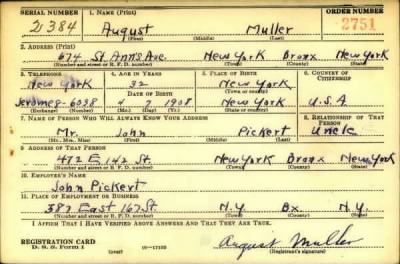 SERIAL NUMBER 1. NAME (Print) ORDER NUMBER
2384 August Muller 2751
(First) (Middle) (Last)
2. ADDRESS (Print)
674 St. Ann's Ave. New York Bronx New York
(Number and street or R. F. D. number) (Town) (County) (State)
3. TELEPHONE 4. AGE IN YEARS 5. PLACE OF BIRTH 6. COUNTRY OF CITIZENSHIP
New York 32 New York
(Town or county)
Jerome 8-6038 4 7 1908 New York U.S.A
(Exchange) (Number) (Mo.) (Day) (Yr.) (State or country)
7. NAME OF PERSON WHO WILL ALWAYS KNOW YOUR ADDRESS 8. RELATIONSHIP OF THAT PERSON
Mr. John Pickert Uncle
(Mr., Mrs., Miss) (First) (Middle) (Last)
9. ADDRESS OF THAT PERSON
472 E 142 St. New York Bronx New York
(Number and street or R. F. D. number) (Town) (County) (State)
10. EMPLOYER'S NAME
John Pickert
11. PLACE OF EMPLOYMENT OR BUSINESS
387 East 167 St. N.Y. Bx. N.Y.
(Number and street or R. F. D. number) (Town) (County) (State)
I AFFIRM THAT I HAVE VERIFIED ABOVE ANSWERS AND THAT THEY ARE TRUE.
REGISTRATION CARD
D. S. S. Form 1 (over) 16—17105 August Muller
(Registrant's signature)